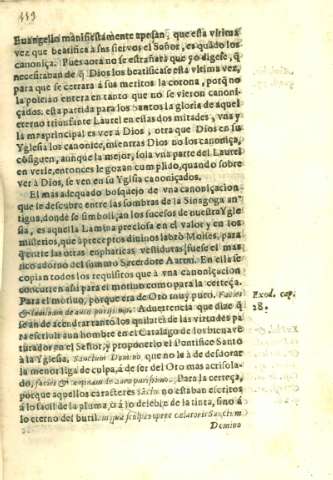 119
Euangelio manifiestamente apesan, que esta vltima
vez que beatifica a sus siervos el Señor, es quãdo los
canoniça. Pues aora no se estrañarà que yo digese, q̃
necesitaban de q̃ Dios los beatificase esta vltima vez,
para que se cerrara á sus meritos la corona, porq̃ no
la podian entera en tanto que no se vieron canoni-
çados. està partida para los Santos la gloria de aquel
eterno triunfante Laurel en estas dos mitades, vna y
la mas principal es ver à Dios, otra que Dios en su
Yglesia los canonice, mientras Dios no los canoniça,
cõsiguen, aunque la mejor, sola vna parte del Laurel
en verle, entonces le goçan cumplido, quando sobre
ver à Dios, se ven en su Yglesia canoniçados.
El mas adequado bosquejo de vna canoniçacion
que se descubre entre las sombras de la Sinagoga an-
tigua, donde se simboliçan los sucesos de nuestra Ygle-
sia, es aquella Lamina preciosa en el valor y en los
misterios, que à preceptos diuinos labrò Moises, para q̃
entre las otras emphaticas vestiduras fuese el mas
rico adorno del summo Sacerdote Aaron. En ella se
copian todos los requisitos que à vna canoniçacion
concurren asi para el motiuo como para la certeça.
Para el motiuo, porque era de Oro muy puro, Facies
& laminam de auro purissimo. Aduertencia que dize q̃
se an de acendrar tanto los quilates de las virtudes pa
ra escriuir a un hombre en el Catalago de los bienave
turados en el Señor, y proponerlo el Pontifice Santo
à la Yglesia, Sanctum Domino que no le à de desdorar
la menor liga de culpa, á de ser del Oro mas acrisola-
do, facies & laminam de auro purissimo. Para la certeça,
porque aquellos caracteres sacros no estaban escritos
à lo facil de la pluma, ó à lo deleble de la tinta, sino á
lo eterno del buril. in qua sculpes opere cælatoris Sanctum
Domino
Exod. cap.
28.